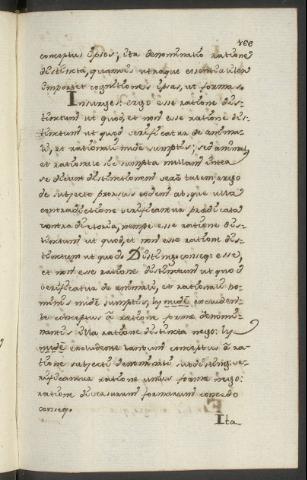 conceptus ipsos; ita denominatio ratione
distincta, quamvis utraque essentialiter
importet cognitiones ipsas, ut formas.
Insurges: ergo esse ratione dis-
tinctum ut quod, et non esse ratione dis-
tinctum ut quod verificatur de anima-
li, et rationali sumptis; sed animal,
et rationale sic sumpta nullam inter
se dicunt distinctionem ergo
de subjecto prorsus eodem absque ulla
contradictione verificantur praedicata
contradictoria, nempe esse ratione dis-
tinctum ut quod, et non esse ratione dis-
tinctum ut quod. Distinguo conseq: esse,
et non esse ratione distinctum ut quod
verificatur de animali, et rationali ho-
minis nude sumptis, ly nude excludente
conceptus a ratione formae denomi-
nantis illa ratione distincta nego: ly
nude excludente tantum conceptus a ra-
tione subjecti denominati subdisting: ve-
rificantur ratione unius formae nego:
ratione diversarum formarum concedo
conseq.
Ita